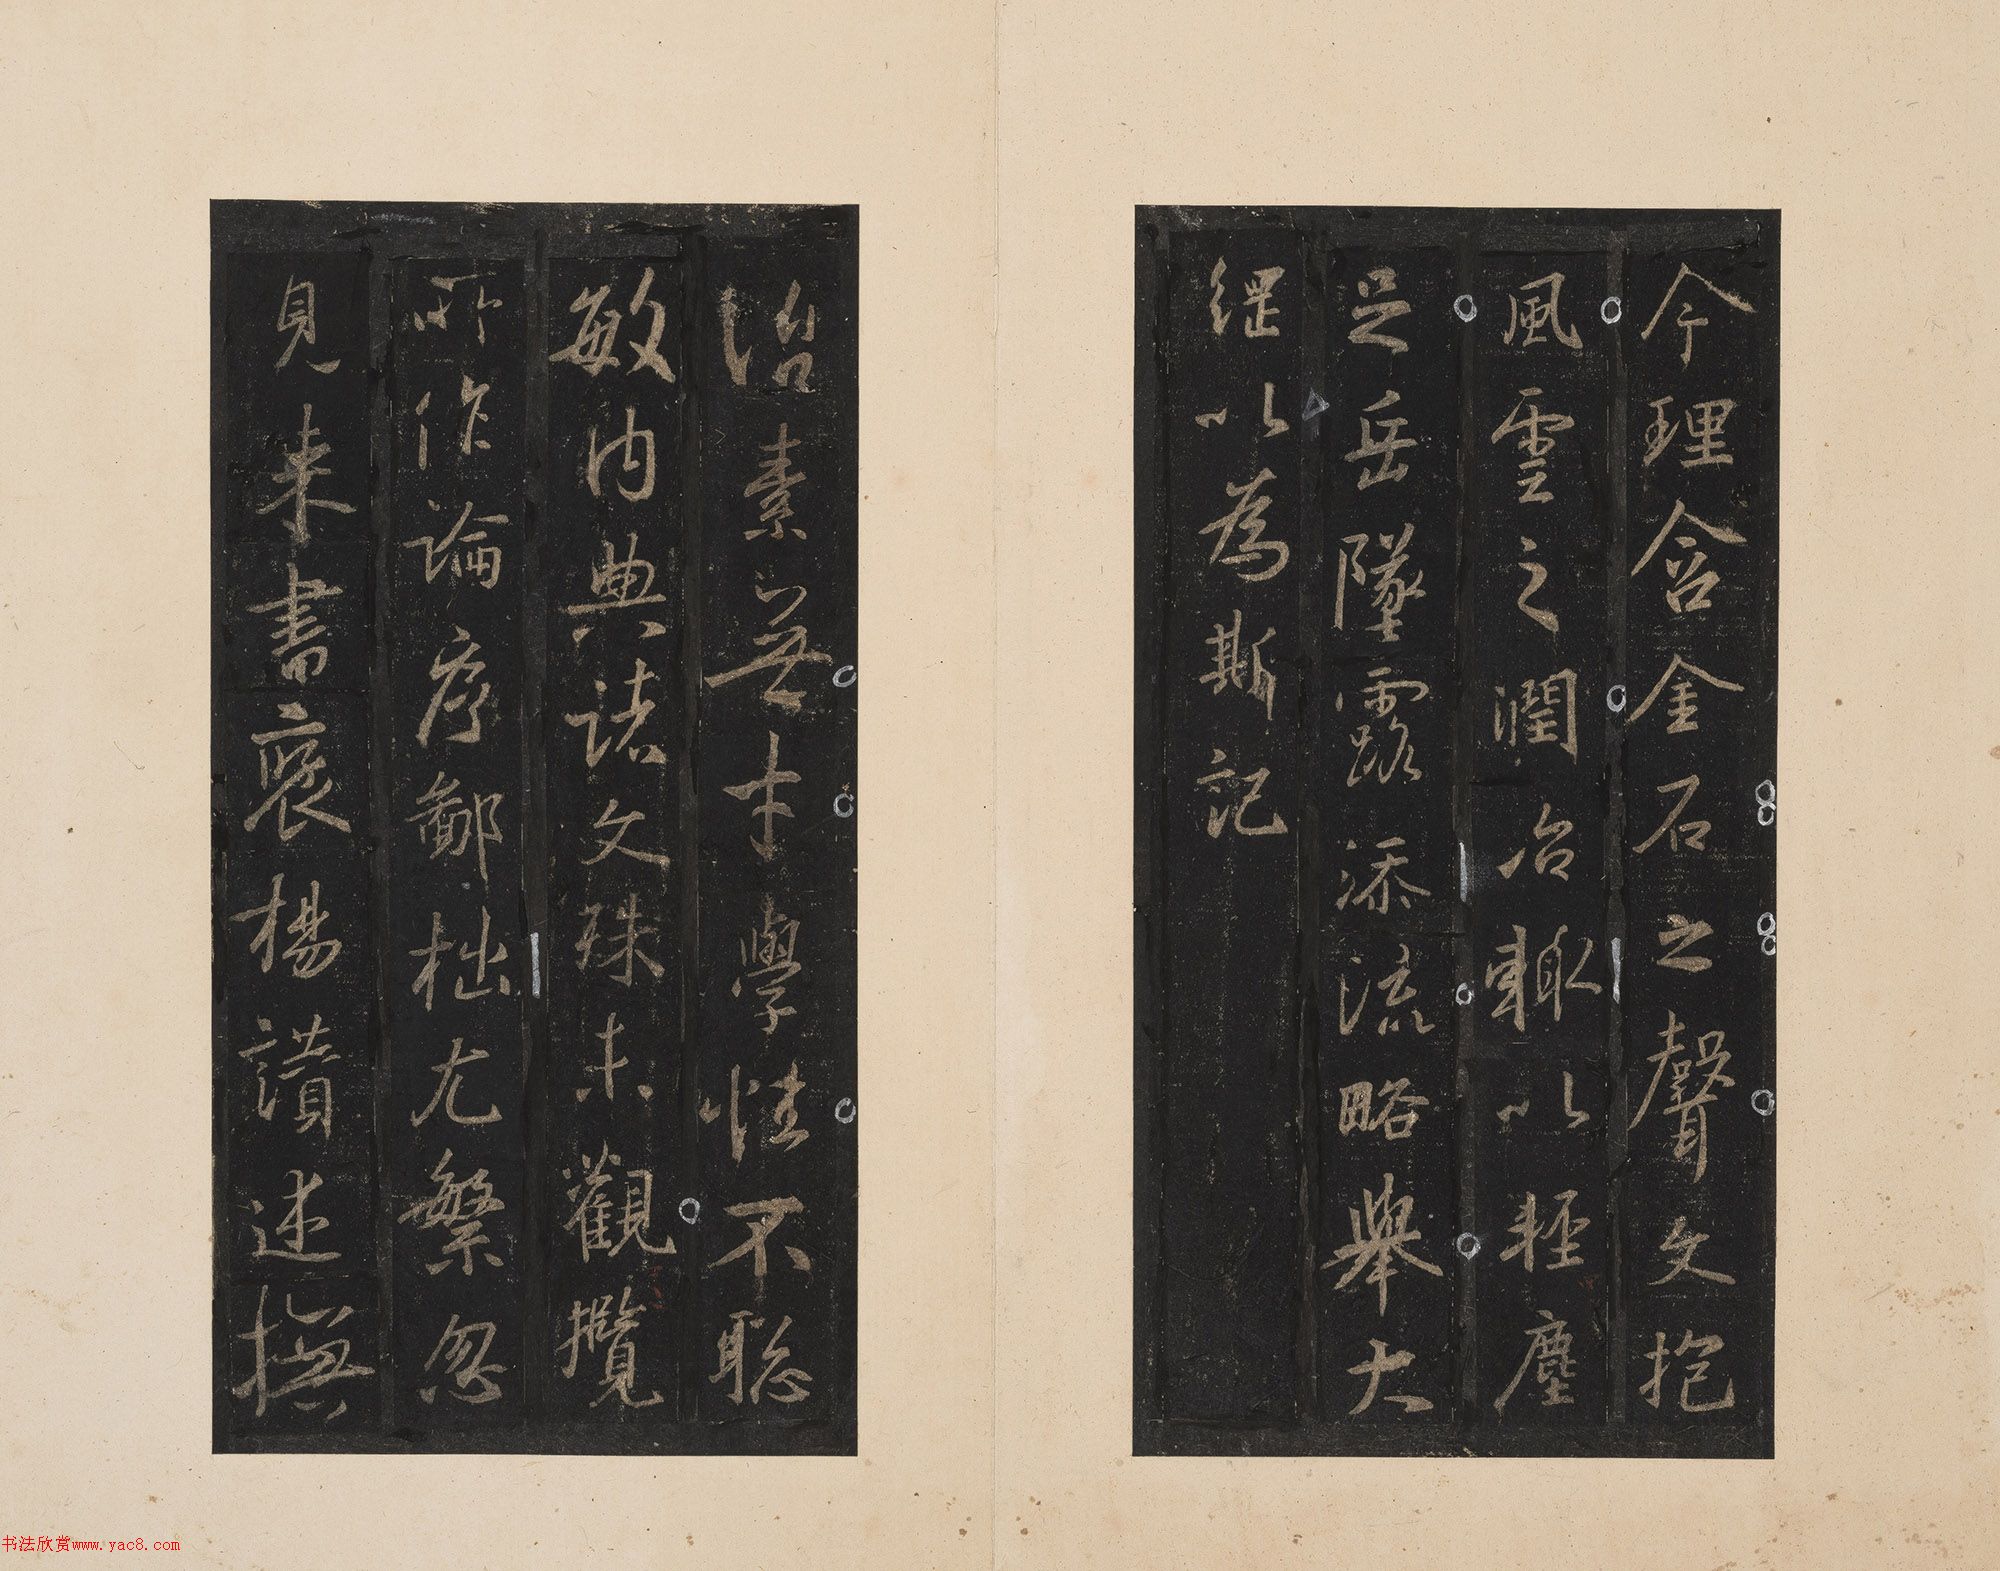 今理含金石之聲文抱
風雲之潤治輒以輕塵
足岳墜露添流略舉大
綱以為斯記
治素無才學性不聡
敏內典諸文殊未觀攬
所作論序鄙拙尤繁忽
見来書褒揚讃述撫
书法欣赏www.yac8.com